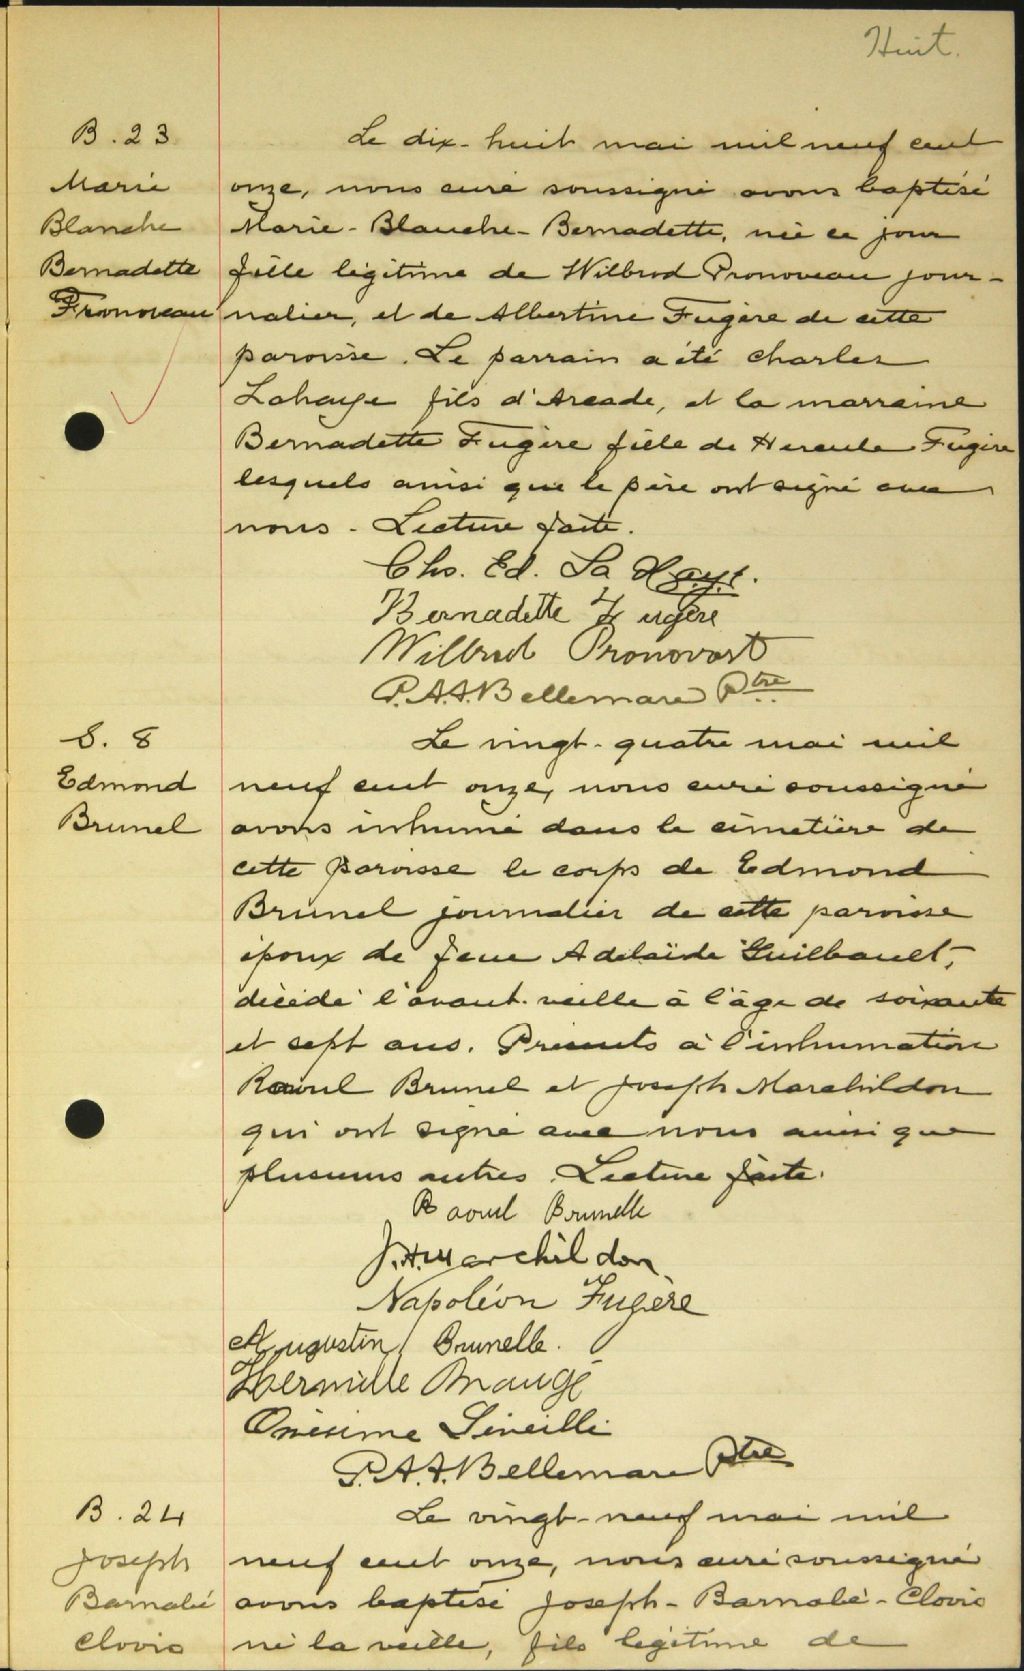 Huit.
B. 23
Marie
Blanche
Bernadette
Pronoveau
Le dix-huit mai mil neuf cent
onze, nous curé soussigné avons baptisé
Marie-Blanche-Bernadette, née ce jour
fille légitime de Wilbrod Pronoveau jour-
nalier, et de Albertine Fugère de cette
paroisse. Le parrain a été Charles
Lahaye fils d'Arcade, et la marraine
Bernadette Fugère fille de Hercule Fugère
lesquels ainsi que le père ont signé avec
nous. Lecture faite.
Chs. Ed. La Haye.
Bernadette Fugère
Wilbrod Pronovost
P.A.A. Bellemare Ptre
S. 8
Edmond
Brunel
Le vingt-quatre mai mil
neuf cent onze, nous curé soussigné
avons inhumé dans le cimetière de
cette paroisse le corps de Edmond
Brunel journalier de cette paroisse
époux de feue Adelaïde Guilbault,
décédé l'avant-veille à l'âge de soixante
et sept ans. Présents à l'inhumation
Raoul Brunel et Joseph Marchildon
qui ont signé avec nous ainsi que
plusieurs autres. Lecture faite.
Raoul Brunelle
J.H. Marchildon
Napoléon Fugère
Augustin Brunelle.
Onésime
P.A.A. Bellemare Ptre
B. 24
Joseph
Barnabé
Clovis
Le vingt-neuf mai mil
neuf cent onze, nous curé soussigné
avons baptisé Joseph-Barnabé-Clovis
né la veille, fils légitime de